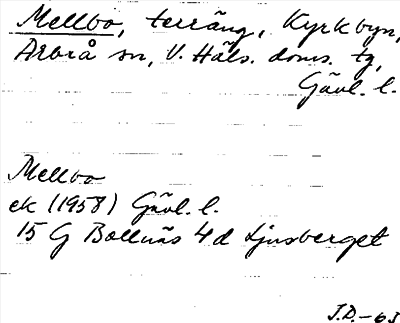 Mellbo, terräng, Kyrkbyn,
Arbrå sn, V. Häls. doms. tg,
Gävl. l.
Mellbo
ek (1958) Gävl. l.
15 G Bollnäs 4d Ljusberget
J.D.-63